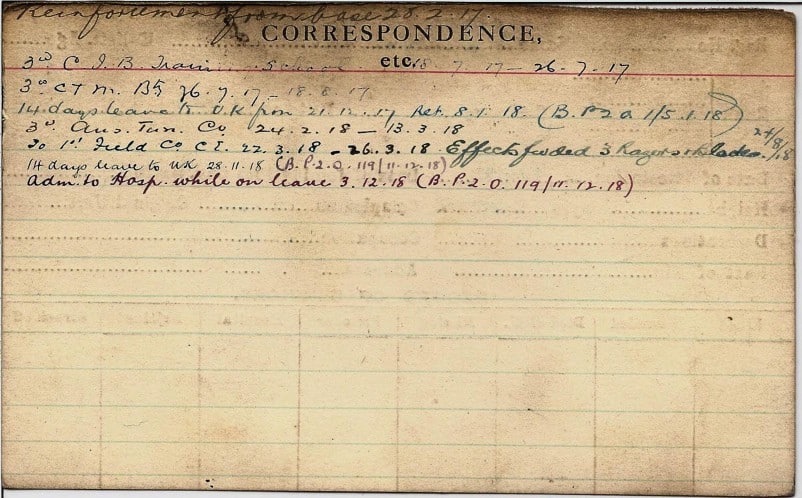 Reinforcement from base 28.2.17
CORRESPONDENCE,
etc.
3rd C.I.B. Training School 18.7.17 – 26.7.17
3rd C T M. Bty 26.7.17 – 18.8.17
14 days leave to U.K from 21.12.17 Ret. 8.1.18. (B.P2.O 1/5.1.18)
3rd Aus. Tun. Co. 24.2.18 – 13.3.18
To 1st Field Co. C.E. 22.3.18 – 26.3.18 Effects fwded 3 Razors 24/8/18
14 days leave to UK 28.11.18 (B.P.2.O. 119/11.12.18)
Adm. to Hosp. while on leave 3.12.18 (B.P.2.O. 119/11.12.18)